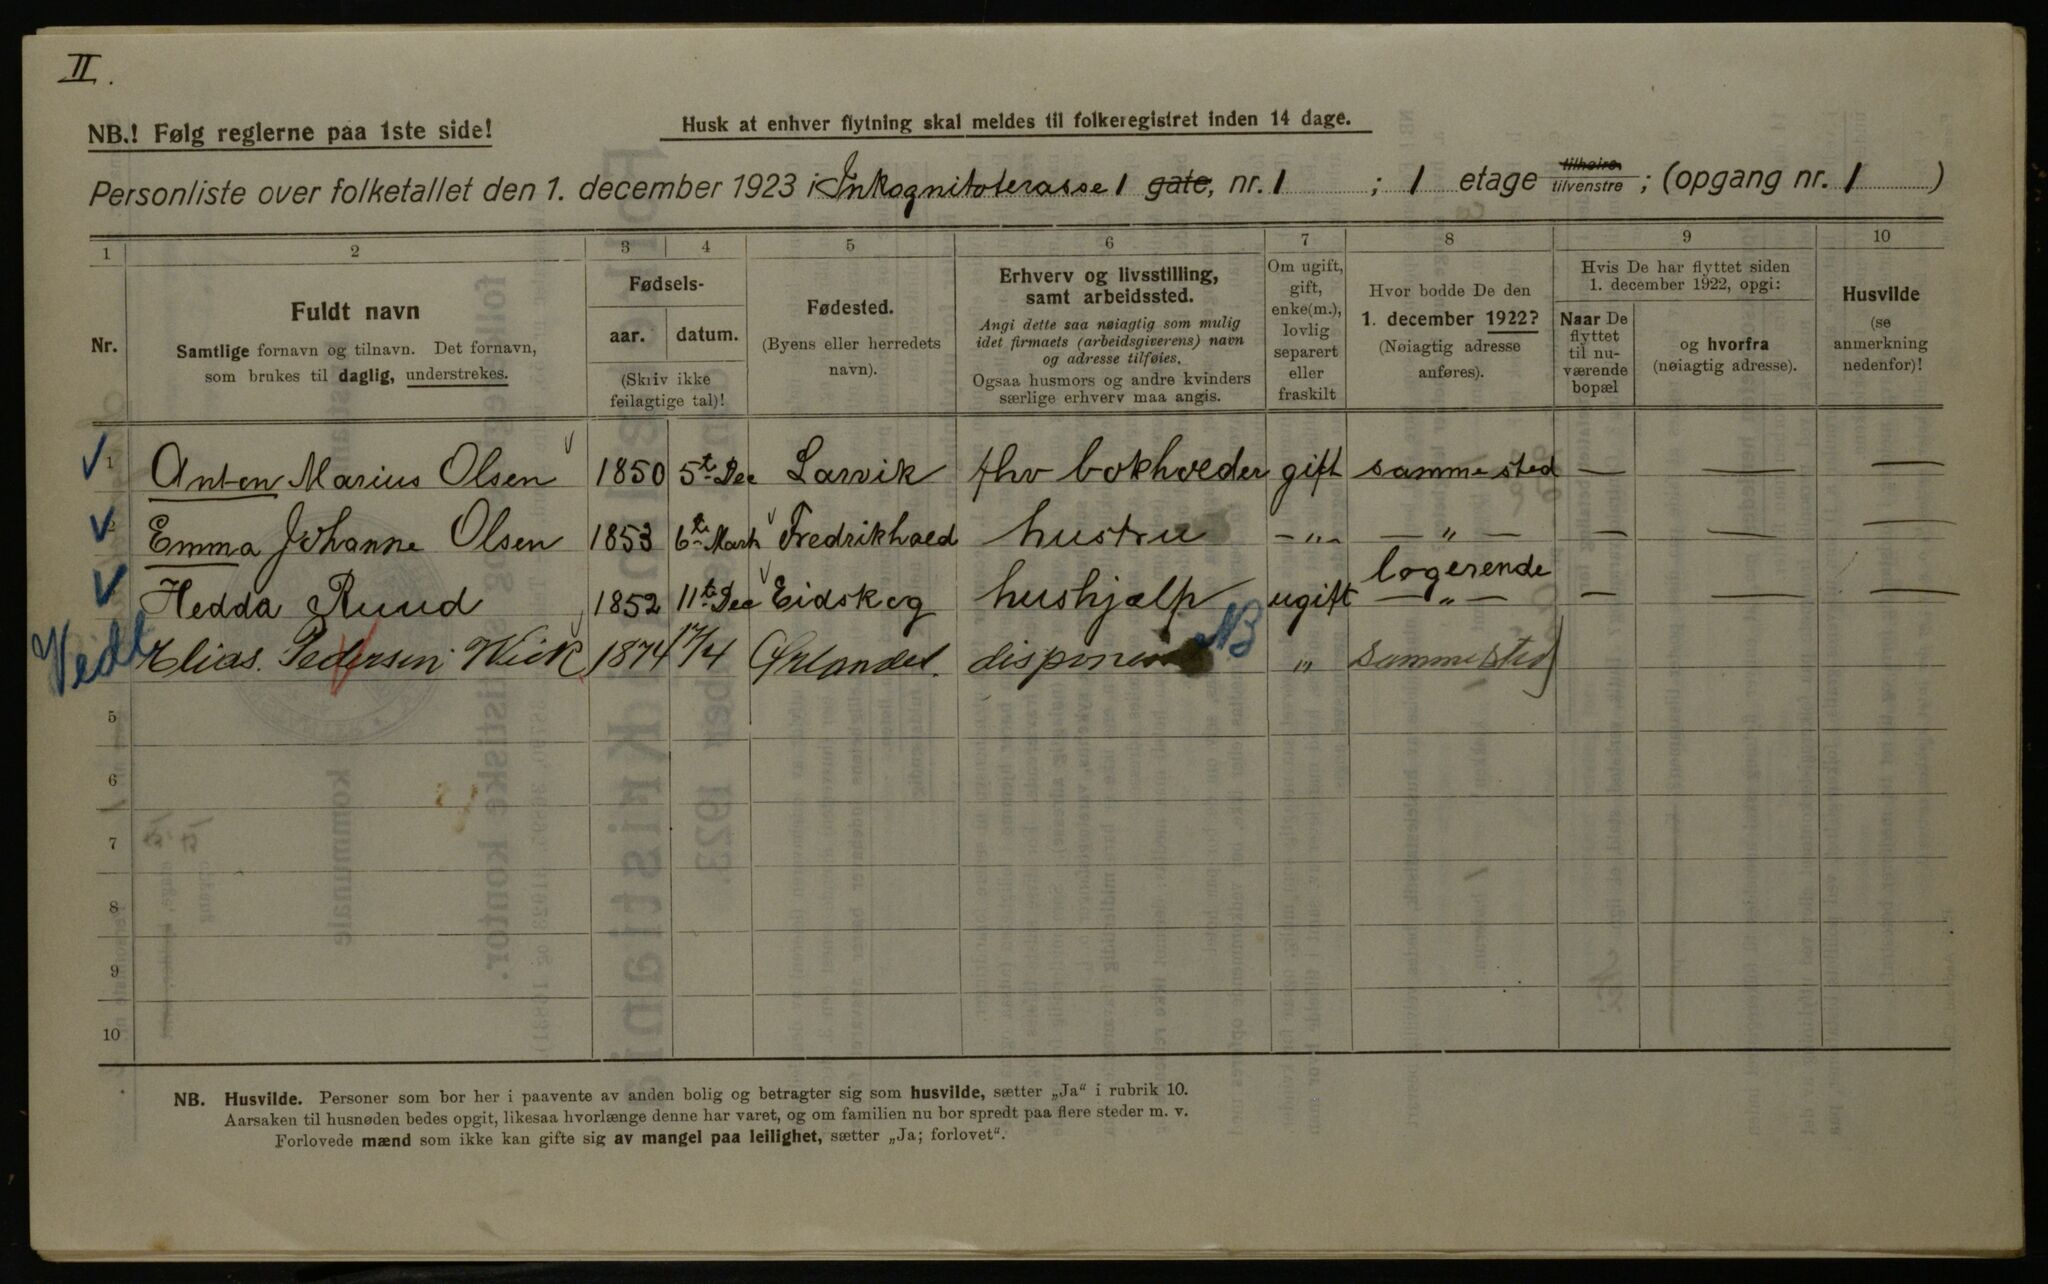 II.
NB.! Følg reglerne paa 1ste side!
Husk at enhver flytning skal meldes til folkeregistret inden 14 dage.
Personliste over folketallet den 1. december 1923 i Inkognitoterasse 1 gate, nr. 1 ; 1 etage tilhøire tilvenstre ; (opgang nr. 1 )
1 2 3 4 5 6 7 8 9 10
Nr.
Fuldt navn
Samtlige fornavn og tilnavn. Det fornavn,
som brukes til daglig, understrekes.
Fødsels-
aar. datum.
(Skriv ikke
feilagtige tal)!
Fødested.
(Byens eller herredets
navn).
Erhverv og livsstilling,
samt arbeidssted.
Angi dette saa nøiagtig som mulig
idet firmaets (arbeidsgiverens) navn
og adresse tilføies.
Ogsaa husmors og andre kvinders
særlige erhverv maa angis.
Om ugift,
gift,
enke(m.),
lovlig
separert
eller
fraskilt
Hvor bodde De den
1. december 1922?
(Nøiagtig adresse
anføres).
Hvis De har flyttet siden
1. december 1922, opgi:
Naar De
flyttet
til nu-
værende
bopæl
og hvorfra
(nøiagtig adresse).
Husvilde
(se
anmerkning
nedenfor)!
1 Anton Marius Olsen 1850 5te Dec Larvik fhv bokholder gift samme sted — — —
2 Emma Johanne Olsen 1853 6te Marh Fredrikhald hustru -"- — " — — — —
logerende
Hedda Ruud 1852 11te Dec Eidskog hushjælp ugift — " — — — —
Vedl Elias Pedersen Wiik 1874 17/4 Ørlandet. NB " samme sted
5
6
7
8
9
10
NB. Husvilde. Personer som bor her i paavente av anden bolig og betragter sig som husvilde, sætter „Ja“ i rubrik 10.
Aarsaken til husnøden bedes opgit, likesaa hvorlænge denne har varet, og om familien nu bor spredt paa flere steder m. v.
Forlovede mænd som ikke kan gifte sig av mangel paa leilighet, sætter „Ja; forlovet“.